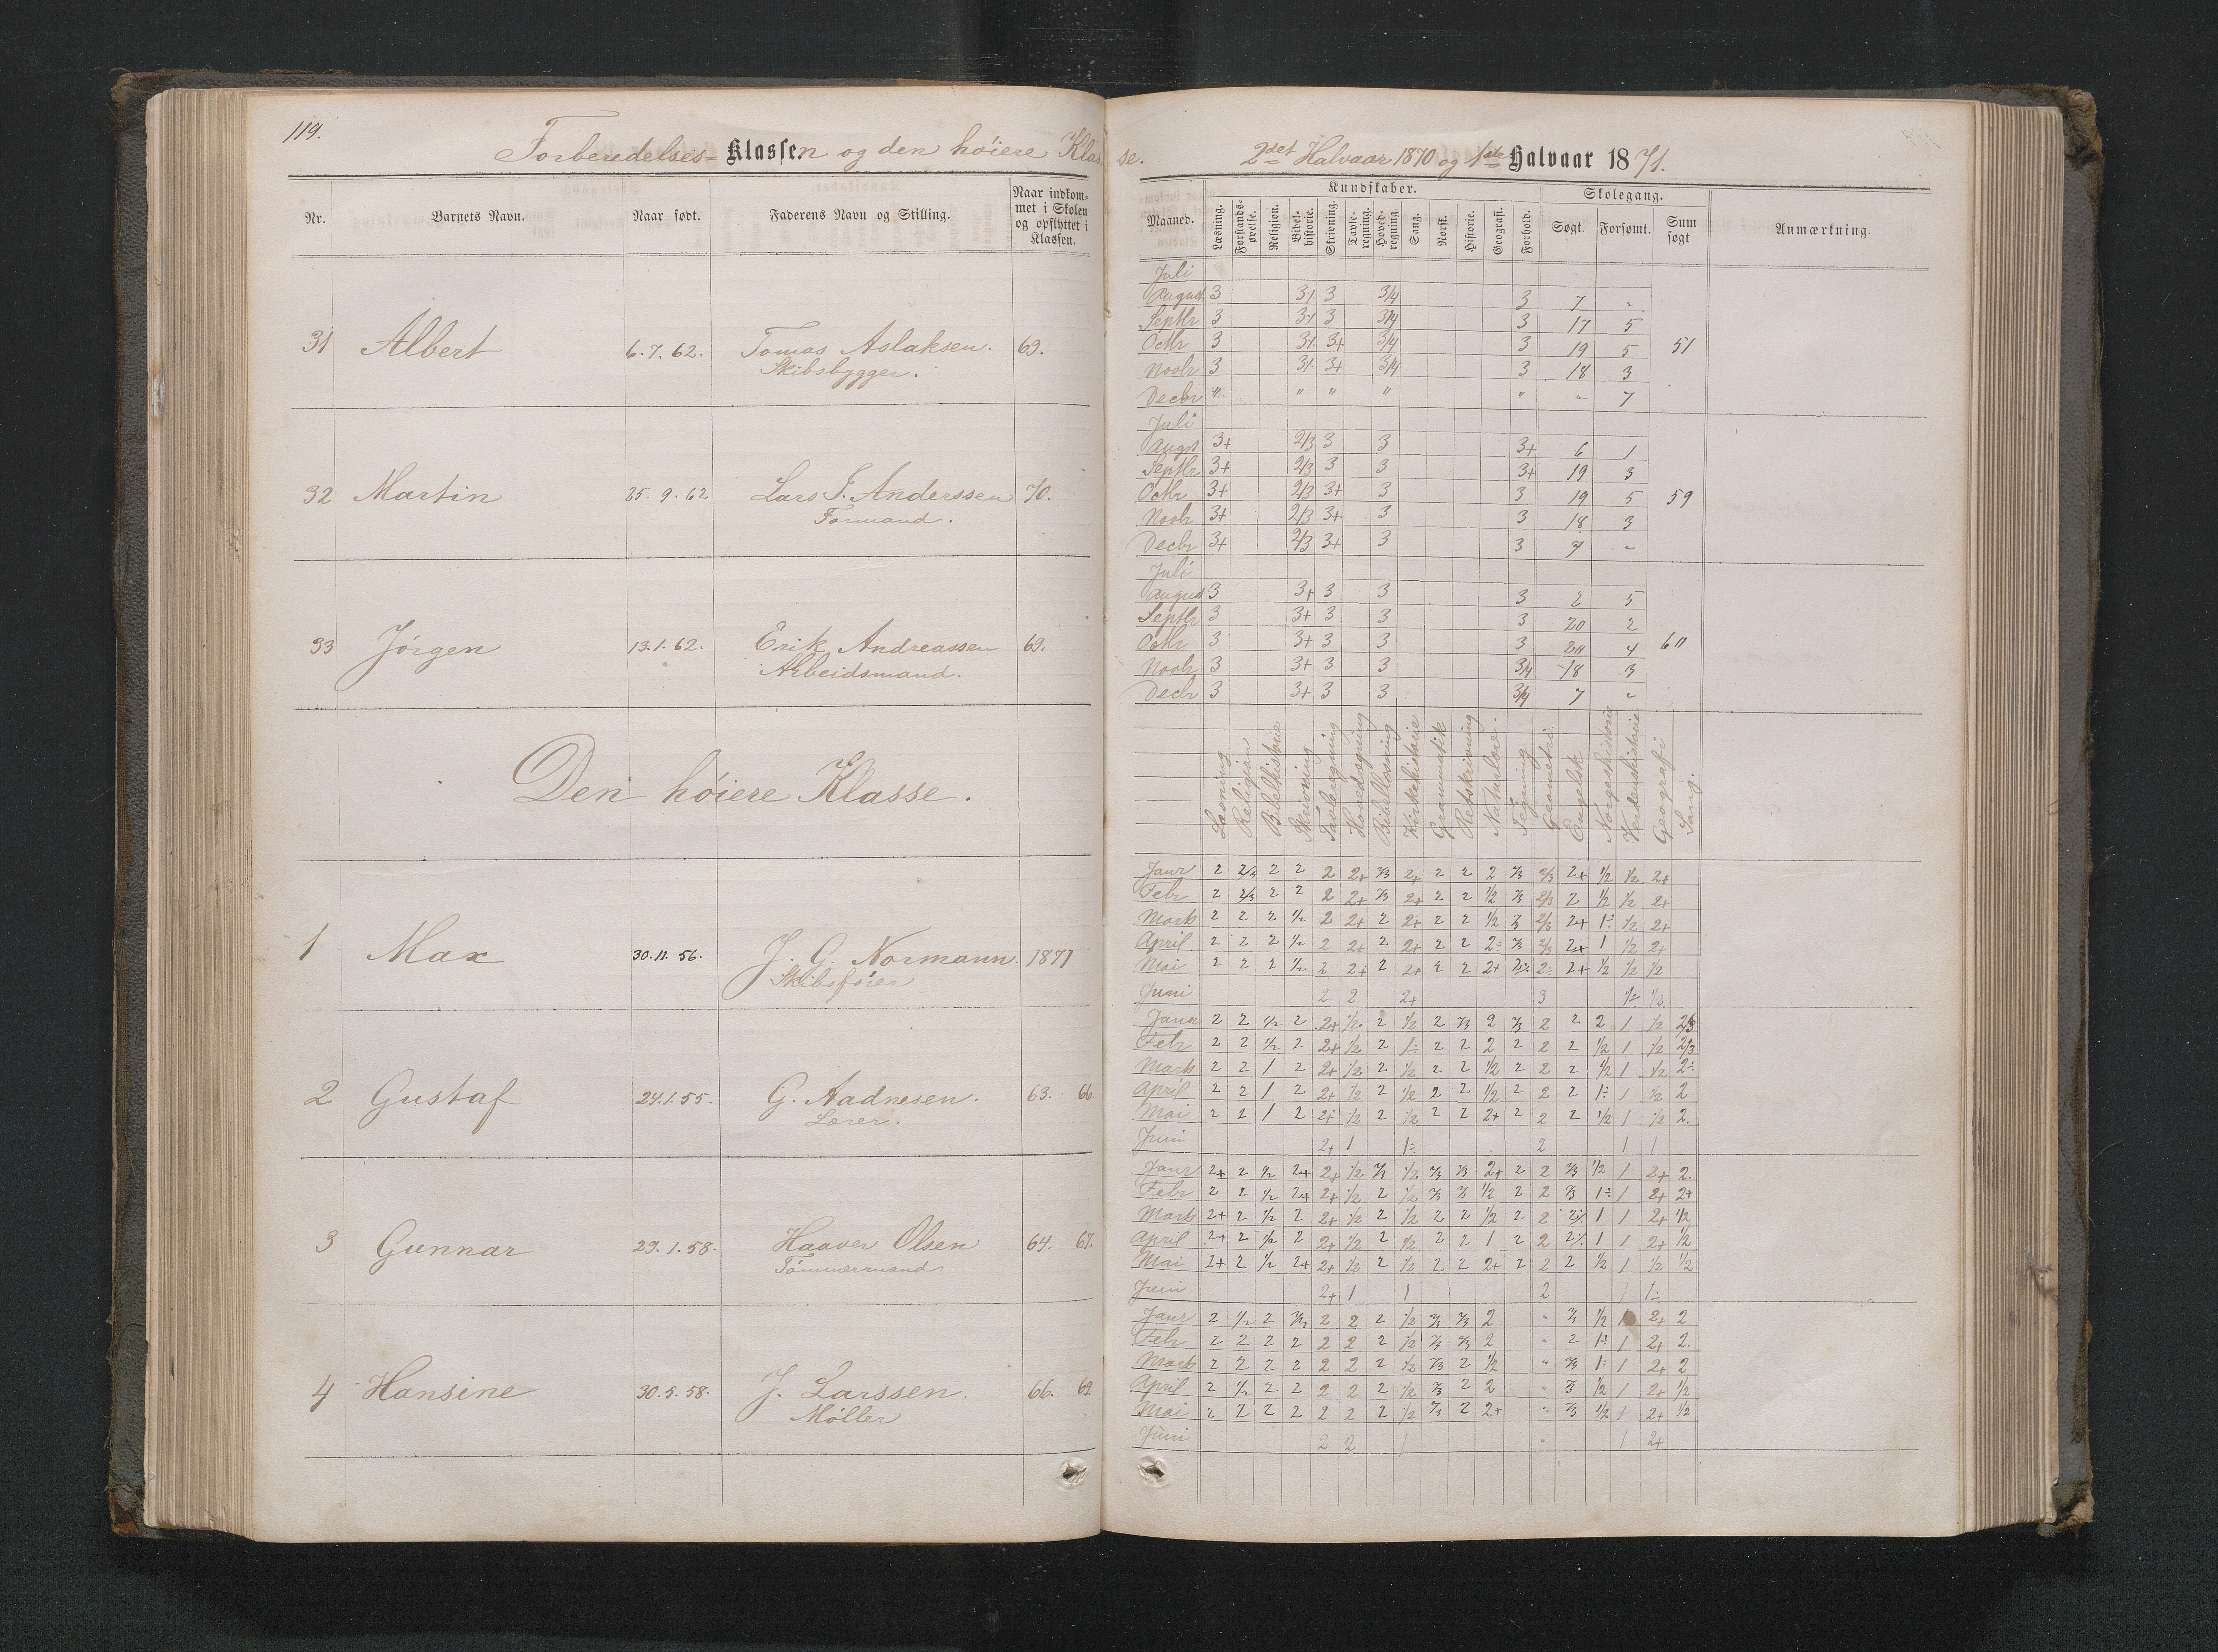 119.
Forberedelses- Klassen og den høiere Klas
Nr.
Barnets Navn.
Naar født.
Faderens Navn og Stilling.
Naar indkom-
met i Skolen
og opflyttet i
Klassen.
31 Albert 6.7.62. Tomas Aslaksen. 69.
Skibsbygger.
32 Martin 25.9.62 Lars T. Anderssen 70.
Formand.
33 Jørgen 13.1.62. Erik Andreassen 69.
Arbeidsmand.
Den høiere Klasse.
1 Max 30.11.56. J. G. Normann. 1871
Skibsfører
2 Gustaf 24.1.55. G. Aadnesen. 63. 66
Lærer.
3 Gunnar 29.1.58. Haaver Olsen 64. 67.
Tømmermand
4 Hansine 30.5.58. J. Larssen. 66. 69.
Møller
se. 2det Halvaar 1870 og 1ste Halvaar 1871.
Kundskaber.
Skolegang.
Maaned.
Læsning.
Forstands-
øvelse.
Religion.
Bibel-
historie.
Skrivning.
Tavle-
regning.
Hoved-
regning.
Sang.
Norsk.
Historie.
Geografi.
Forhold.
Søgt.
Forsømt.
Sum
søgt
Anmærkning
Juli
August 3 3/ 3 3/4 3 7 "
Septbr 3 3/ 3 3/4 3 17 5
Octbr 3 3/ 3+ 3/4 3 19 5 51
Novbr 3 3/ 3+ 3/4 3 18 3
Decbr " " " " " " 7
Juli
Augst 3+ 2/3 3 3 3+ 6 1
Septbr 3+ 2/3 3 3 3+ 19 3
Octbr 3+ 2/3 3+ 3 3 19 5 59
Novbr 3+ 2/3 3+ 3 3 18 3
Decbr 3+ 2/3 3+ 3 3 7 "
Juli
August 3 3+ 3 3 3 2 5
Septbr 3 3+ 3 3 3 20 2
Octbr 3 3+ 3 3 3 20 4 60
Novbr 3 3+ 3 3 3/4 18 3
Decbr 3 3+ 3 3 3/4 7 "
Læsning
Religion
Bibelhistorie
Skrivning
Tavleregning
Hovedregning
Bibellæsning
Kirkehistorie
Grammatik
Retskrivning
Naturlære.
Tegning
Geometri.
Engelsk
Norgeshistorie
Verdenshistorie
Geografi
Sang.
Janr 2 2/3 2 2 2 2+ 2/3 2+ 2 2 2 2/3 2/3 2+ 1/2 1/2 2+
Febr 2 2/3 2 2 2 2+ 2/3 2+ 2 2 1/2 2/3 2/3 2 1/2 1/2 2+
Marts 2 2 2 1/2 2 2+ 2 2+ 2 2 1/2
April 2 2 2 1/2 2 2+ 2 2+ 2 2 2÷ 2/3 2/3 2+ 1 1/2 2+
Mai 2 2 2 1/2 2 2+ 2 2+ 2 2 2+ 2÷ 2÷ 2+ 1/2 1/2 1/2
Juni 2 2 2+ 3 1/2 1/2
Janr 2 2 1/2 2 2+ 1/2 2 1/2 2 2/3 2 2/3 2 2 2 1 1/2 2/3
Febr 2 2 1/2 2 2+ 1/2 2 1÷ 2 2 2 2 2 2 1/2 1 1/2 2/3
Marts 2 2 1 2 2+ 1/2 2 1/2 2 2 1/2 2 2 2 1/2 1 1/2 2÷
April 2 2 1 2 2+ 1/2 2 1/2 2 2 1/2 2 2 2 1÷ 1 1/2 2
Mai 2 2 1 2 2+ 1/2 2 1/2 2 2 2+ 2 2 2 1/2 1 1/2 2.
Juni 2+ 1 1÷ 2 1 1
Janr 2+ 2 1/2 2+ 2+ 1/2 2/3 1/2 2/3 2/3 2+ 2 2 2/3 1/2 1 2+ 2.
Febr 2 2 1/2 2+ 2+ 1/2 2 1/2 2/3 2/3 1/2 2 2 2/3 1÷ 1 2+ 2+
Marts 2+ 2 1/2 2 2+ 1/2 2 1/2 2 2 1/2 2 2 2÷ 1 1 2+ 1/2
April 2+ 2 1/2 2 2+ 1/2 2 1/2 2 2 1 2 2 2÷ 1 1 2+ 1/2
Mai 2+ 2 1/2 2+ 2+ 1/2 2 1/2 2 2 2+ 2 2 2 1/2 1 1/2 1/2
Juni 2+ 1 1 2 1 1÷
Janr 2 1/2 2 2/3 2 2 2 1/2 2/3 2/3 2 " 2/3 1/2 1 2+ 2
Febr 2 2 2 2 2 2 2 1/2 2/3 2/3 2 " 2 1÷ 1 2+ 2.
Marts 2 2 2 2 2 2 2 1/2 2/3 2 1/2 " 2/3 1÷ 1 2+ 2
April 2 1/2 2 2 2 2 2 1/2 2/3 2 2 " 2/3 1/2 1 2+ 1/2
Mai 2 2 2 2 2 2 2 1/2 2/3 2 2+ " 2/3 1/2 1 2+ 1/2
Juni 2 2 1 " 1 2+